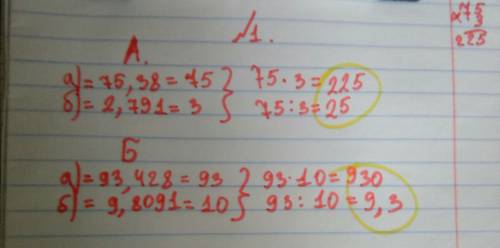 №1.
А.
а) = 75,38 = 75 } 75·3 = 225
б) = 2,791 = 3 } 75:3 = 25
Б
а) = 93,428 = 93 } 93·10 = 930
б) = 9,8091 = 10 } 93:10 = 9,3
×75
3
225